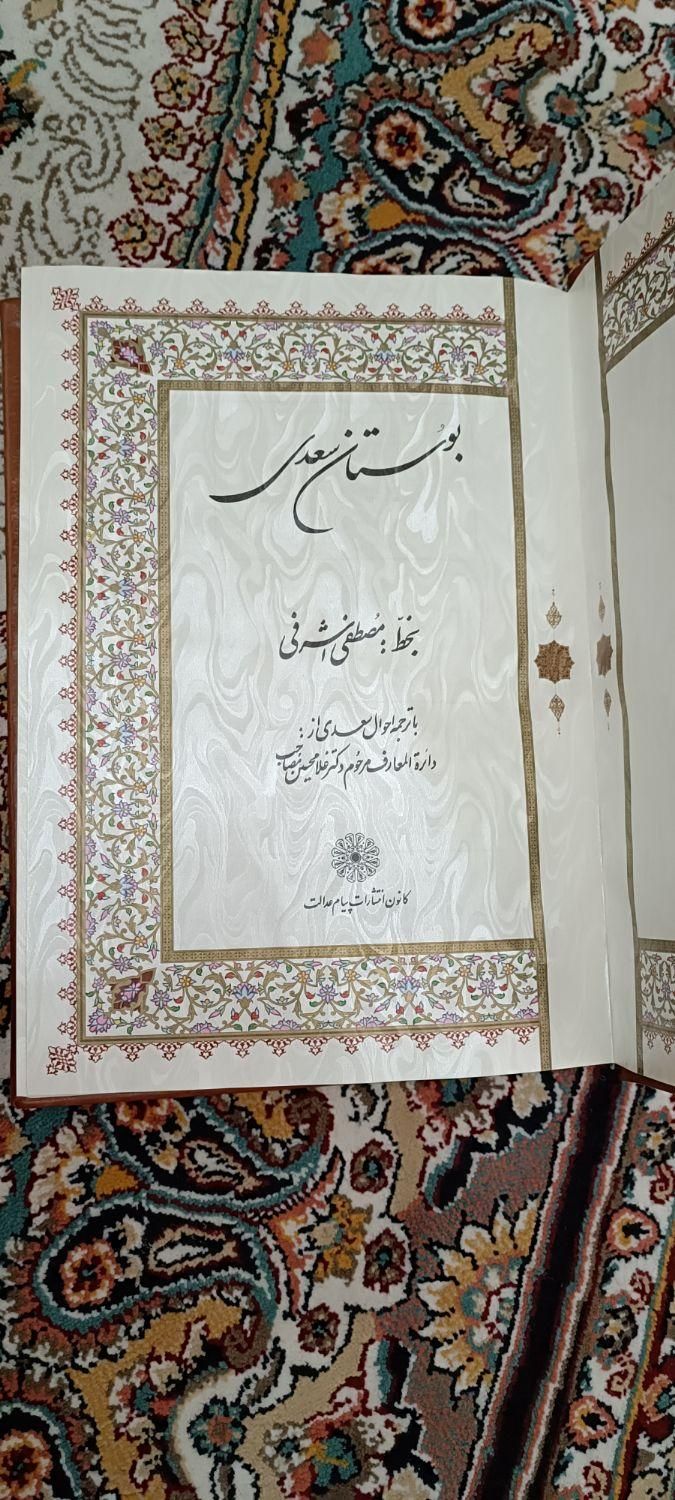 بوستان سعدی
بخطّ: مصطفی اشرفی
با ترجمه احوال سعدی از:
دائرة المعارف مرحوم دکتر غلامحسین مصاحب
کانون انتشارات پیام عدالت